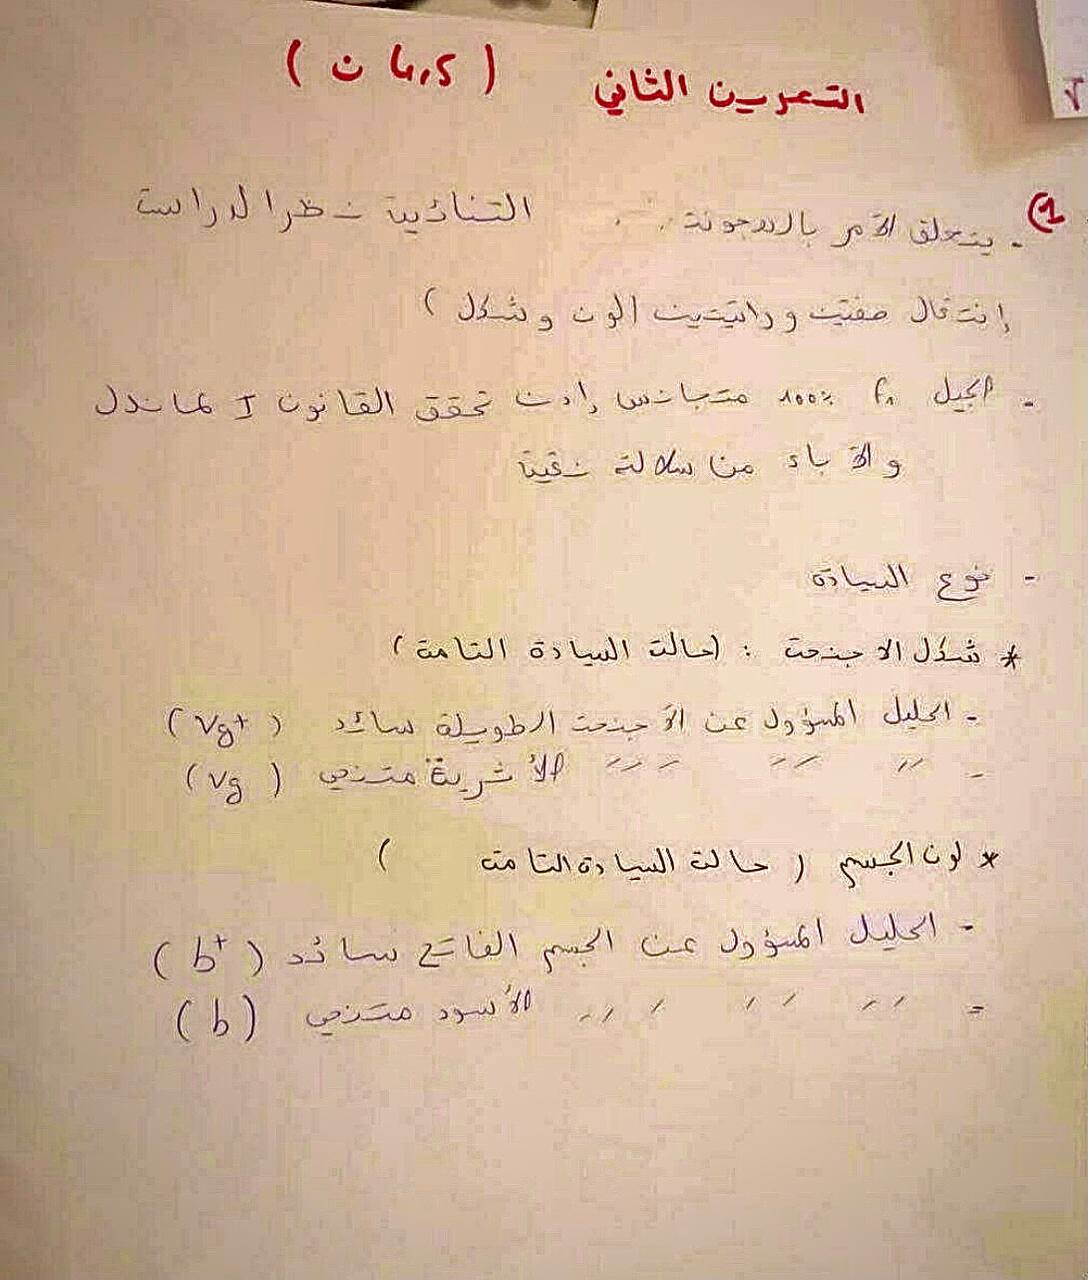 التمرين الثاني ( 4,5 ن )
1) - يتعلق الأمر بالهجونة التنائية نظرا لدراسة
إنتقال صفتين وراتيتين اللون وشكل )
- الجيل F1 100% متجانس إدن تحقق القانون I لماندل
والآباء من سلالة نقية
- نوع السيادة
* شكل الاجنحة : (حالة السيادة التامة )
- الحليل المسؤول عن الأجنحة الطويلة سائد ( vg+ )
- " " " " الأثرية متنحي ( vg )
* لون الجسم ( حالة السيادة التامة )
- الحليل المسؤول عن الجسم الفاتح سائد ( b+ )
= " " " " الأسود متنحي ( b )